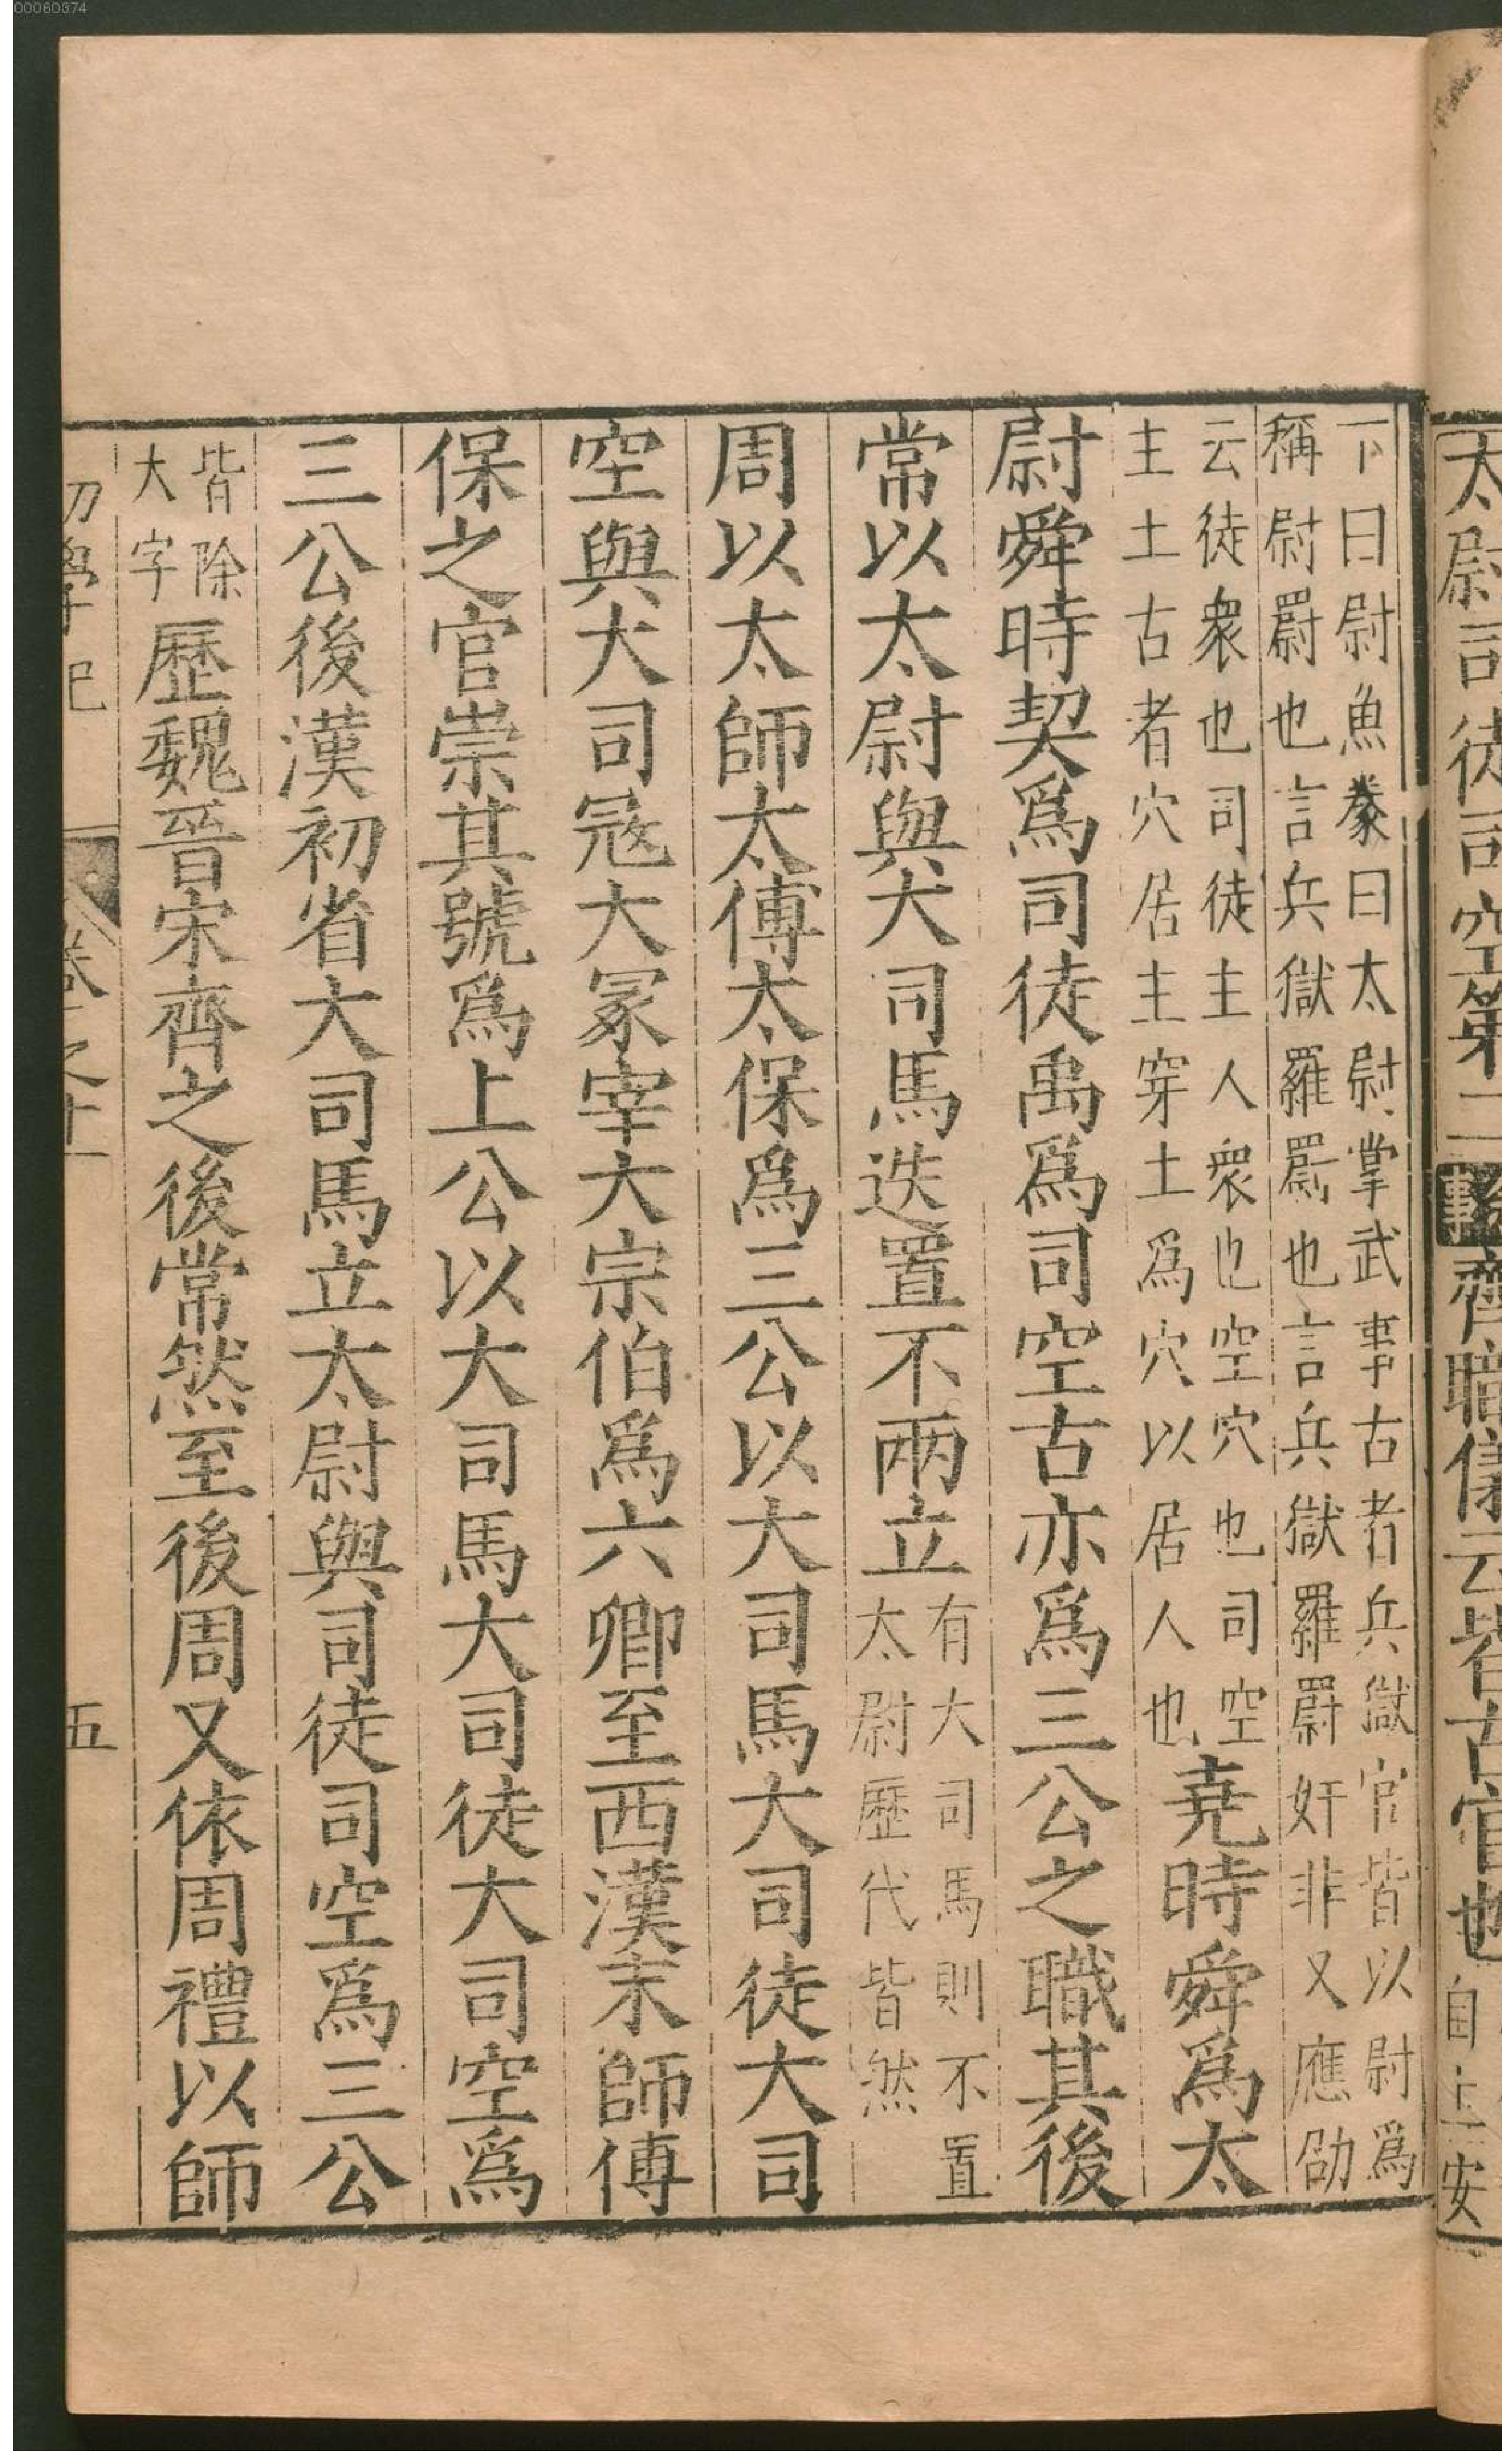 00060374
太尉司徒司空第二
齊職儀云皆古官也自上安
下曰尉魚豢曰太尉掌武事古者兵獄官皆以尉爲
稱尉罻也言兵獄羅罻也言兵獄羅罻奸非又應劭
云徒衆也司徒主人衆也空穴也司空
主土古者穴居主穿土爲穴以居人也
堯時舜爲太
尉舜時契爲司徒禹爲司空古亦爲三公之職其後
常以太尉與大司馬迭置不兩立
有大司馬則不置
太尉歷代皆然
周以太師太傅太保爲三公以大司馬大司徒大司
空與大司寇大冢宰大宗伯爲六卿至西漢末師傅
保之官崇其號爲上公以大司馬大司徒大司空爲
三公後漢初省大司馬立太尉與司徒司空爲三公
皆除
大字
歷魏晉宋齊之後常然至後周又依周禮以師
初學記
卷之十一
五